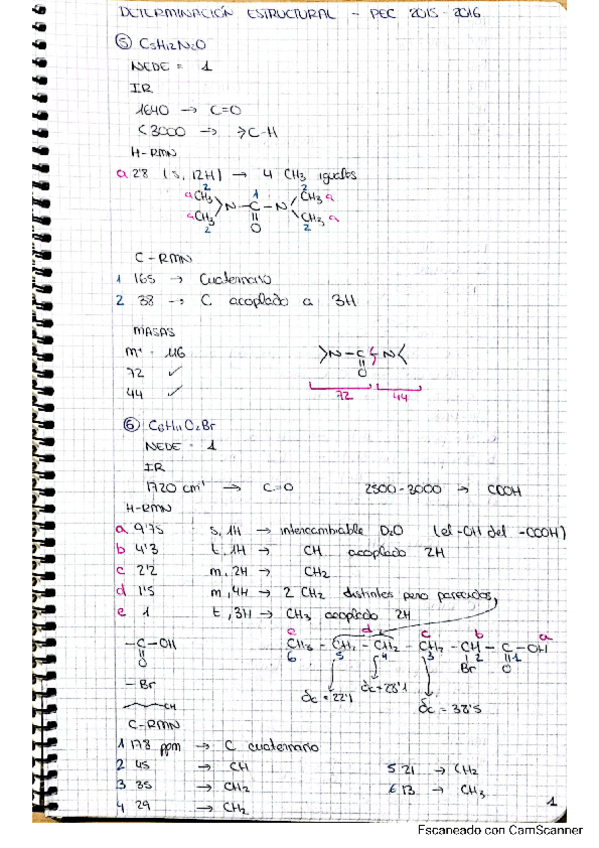 DETERMINACIÓN ESTRUCTURAL - PEC 2015-2016
⑤ C5H12N2O
NEDE = 1
IR
1640 → C=O
<3000 → >C-H
H-RMN
a 2'8 (s, 12H) → 4 CH3 iguales
2 1 2
aCH3 CH3 a
N-C-N
aCH3 O CH3 a
2 2
C-RMN
1 165 → Cuaternario
2 38 → C acoplado a 3H
MASAS
m+ = 116 >N-C-N<
72 ✓ O
44 ✓ 72 44
⑥ C6H11O2Br
NEDE = 1
IR
1720 cm-1 → C=O 2500-3000 → COOH
H-RMN
a 9'75 s, 1H → intercambiable D2O (el -OH del -COOH)
b 4'3 t, 1H → CH acoplado 2H
c 2'2 m, 2H → CH2
d 1'5 m, 4H → 2 CH2 distintos pero parecidos
e 1 t, 3H → CH3 acoplado 2H
e d c b a
-C-OH CH3 - CH2 - CH2 - CH2 - CH - C - OH
O 6 5 4 3 Br 2 O 1
-Br δc = 22'1 δc = 28'1 δc = 38'5
CH
C-RMN
1 178 ppm → C cuaternario
2 45 → CH 5 21 → CH2
3 35 → CH2 6 13 → CH3
4 29 → CH2 1
Escaneado con CamScanner